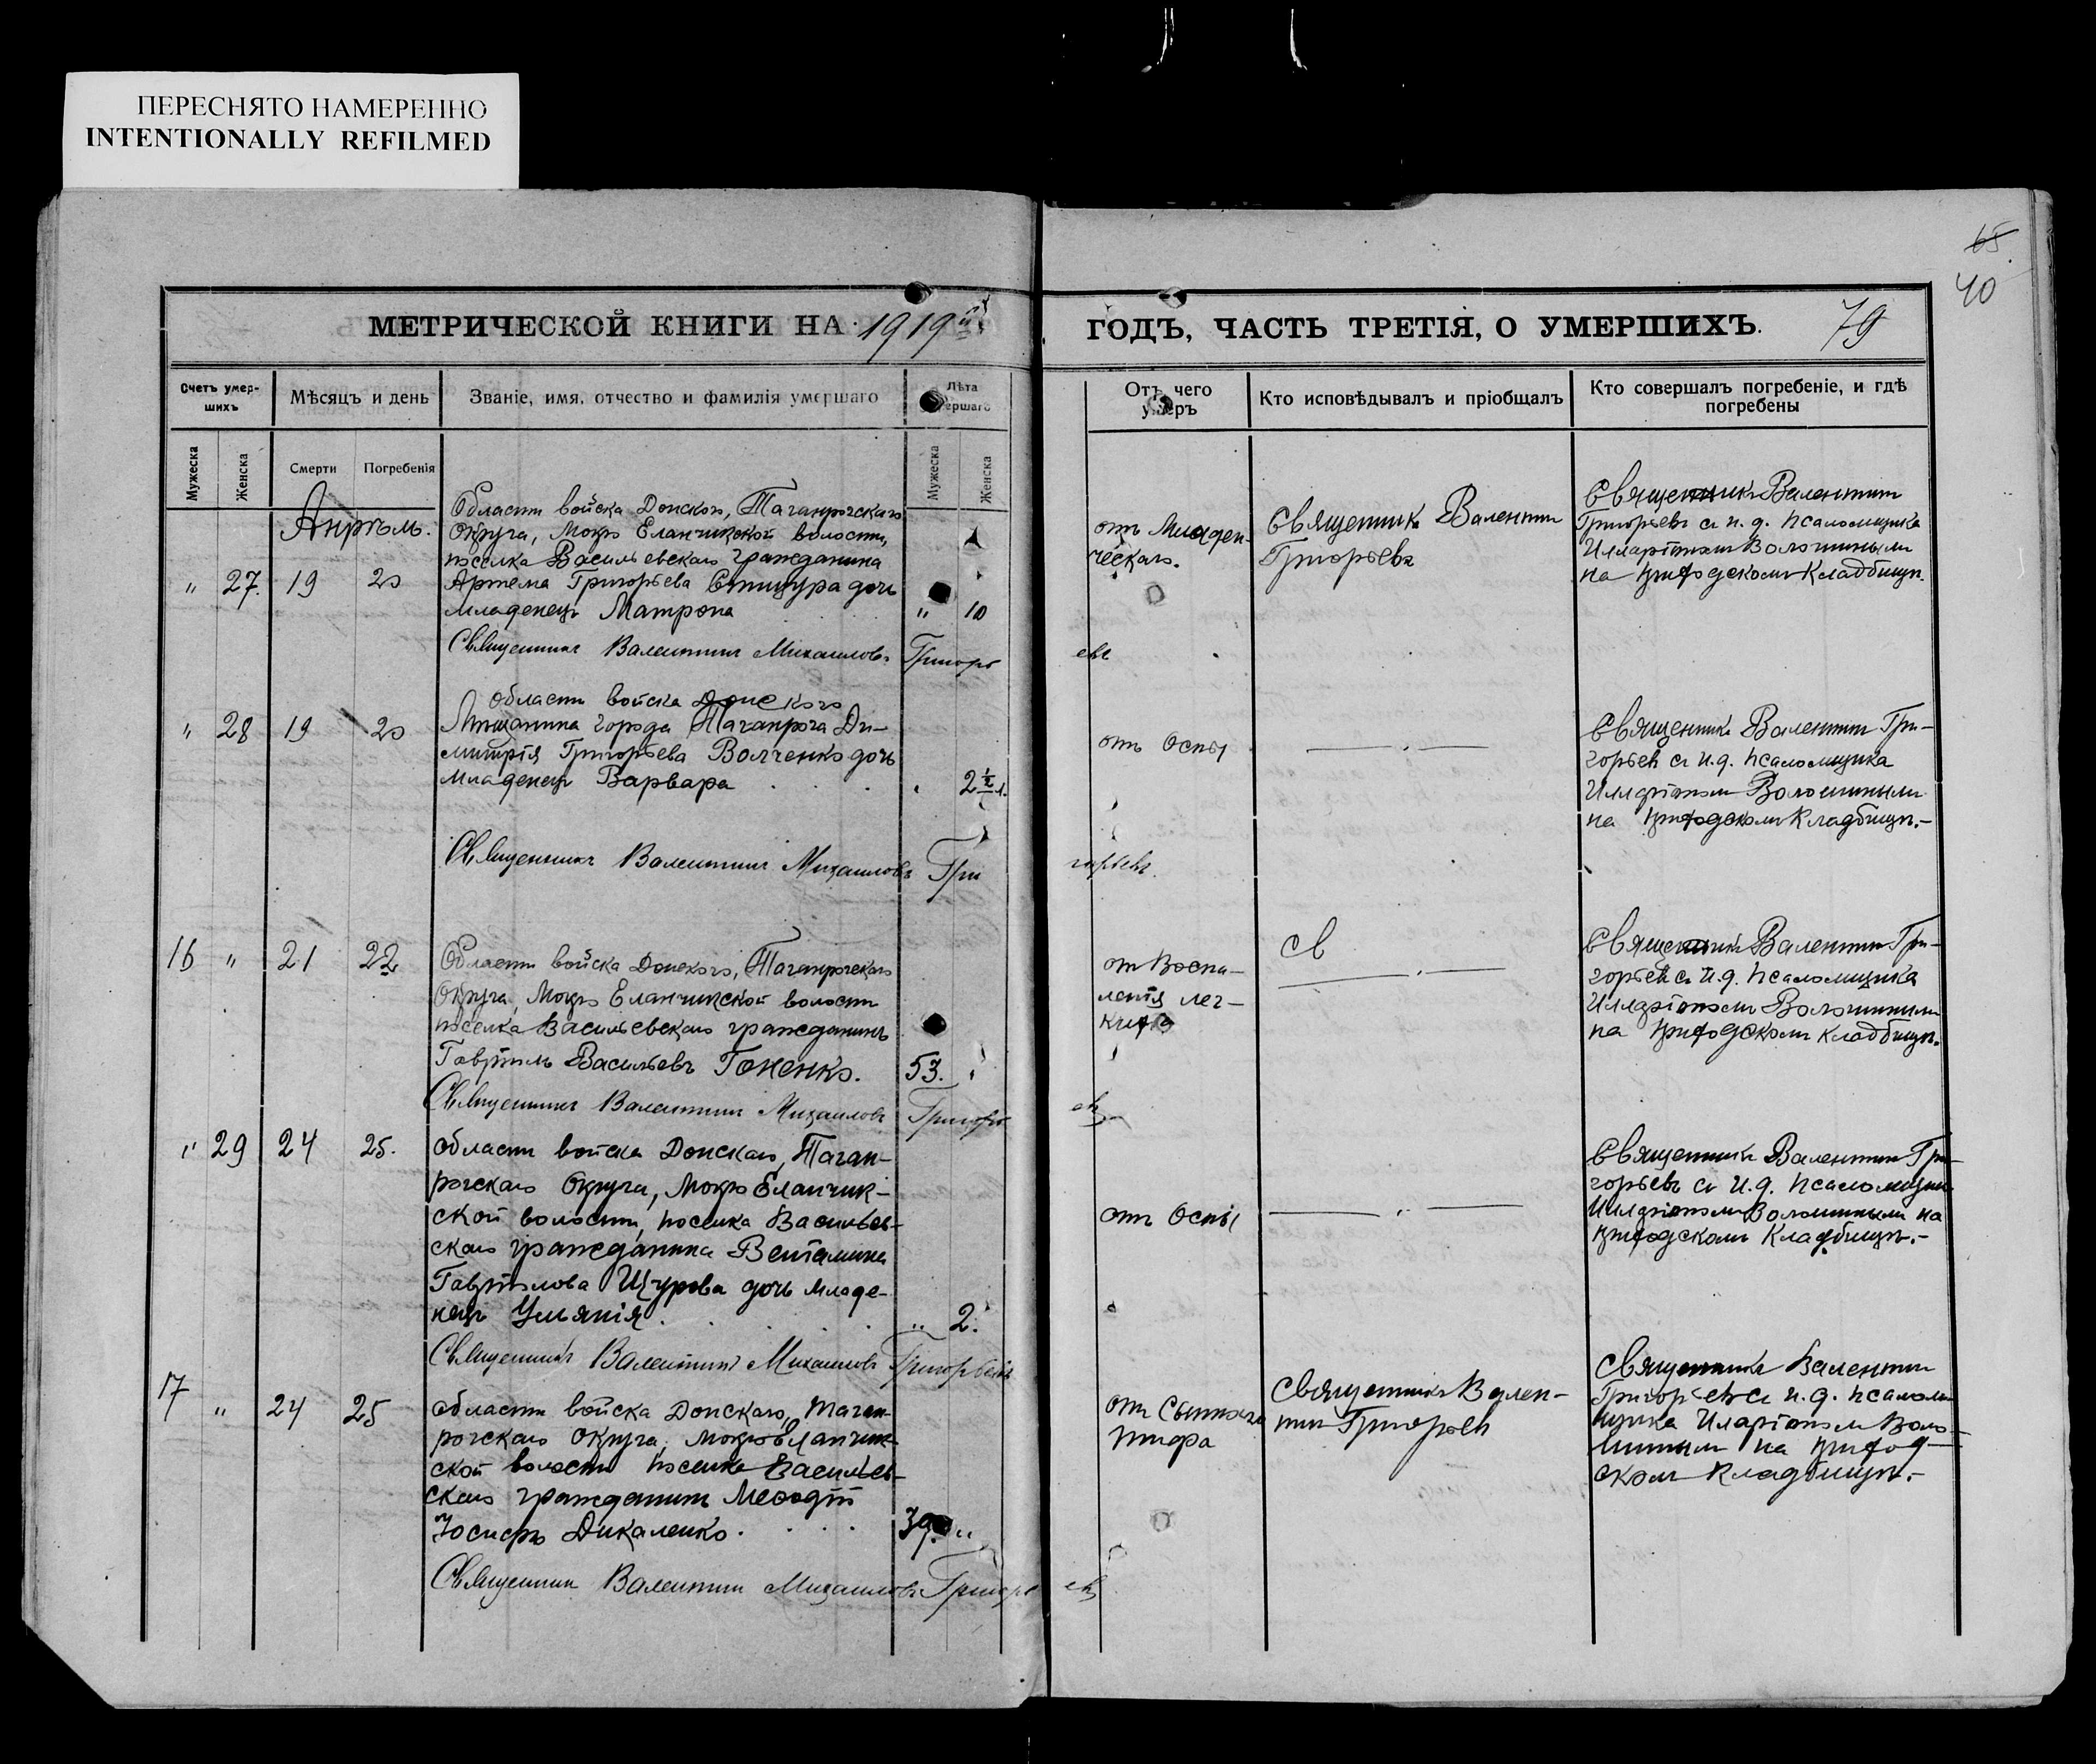 ПЕРЕСНЯТО НАМЕРЕННО
INTENTIONALLY REFILMED
65
40
МЕТРИЧЕСКОЙ КНИГИ НА 1919й
ГОДЪ, ЧАСТЬ ТРЕТІЯ, О УМЕРШИХЪ.
79
Счетъ умер-
шихъ
Мѣсяцъ и день
Званіе, имя, отчество и фамилія умершаго
Лѣта
Мужеска
Женска
Смерти
Погребенія
Мужеска
Женска
Отъ чего
умеръ
Кто исповѣдывалъ и пріобщалъ
Кто совершалъ погребеніе, и гдѣ
погребены
Апрѣль.
Области войска Донского, Таганрогскаго
Округа, Мокро Еланчикской волости,
поселка Васильевскаго гражданина
" 27. 19 20 Артема Григорьева дочь
младенецъ Матрона " 10
отъ Младен-
ческаго.
Священникъ Валентинъ
Григорьевъ
Священникъ Валентинъ
Григорьевъ съ и. д. псаломщика
Илларіономъ Волошинымъ
на приходскомъ кладбищѣ.
Священникъ Валентинъ Михаиловъ Григорьевъ
Области войска Донского
" 28 19 20 Мѣщанина города Таганрога Ди-
митрія Григорьева Волченко дочь
младенецъ Варвара 2 1/2 л.
отъ Оспы
Священникъ Валентинъ Гри-
горьевъ съ и. д. псаломщика
Илларіономъ Волошинымъ
на приходскомъ кладбищѣ.-
Священникъ Валентинъ Михаиловъ Григорьевъ.
16 " 21 22 Области войска Донского, Таганрогскаго
Округа, Мокро Еланчикской волости
поселка Васильевскаго гражданинъ
Гавріилъ Васильевъ Гоненко. 53. "
от Воспа-
ленія лег-
кихъ
Св
Священникъ Валентинъ Гри-
горьевъ съ и. д. псаломщика
Илларіономъ Волошинымъ
на приходскомъ кладбищѣ.
Священникъ Валентинъ Михаиловъ Григорьевъ
" 29 24 25. Области войска Донскаго, Таган-
рогскаго Округа, Мокро Еланчик-
ской волости, поселка Васильев-
скаго гражданина Веніамина
Гавріилова Щурова дочь младе-
нецъ Уліянія. " 2.
отъ Оспы
Священникъ Валентинъ Гри-
горьевъ съ и. д. псаломщика
Илларіономъ Волошинымъ на
приходскомъ кладбищѣ.-
Священникъ Валентинъ Михаиловъ Григорьевъ
17 " 24 25 области войска Донскаго, Таган-
рогскаго Округа, Мокро Еланчик-
ской волости поселка Васильев-
скаго гражданинъ Меѳодій
Іосифъ Дикаленко. 39. "
отъ Сыпнаго
тифа
Священникъ Вален-
тинъ Григорьевъ
Священникъ Валентинъ
Григорьевъ съ и. д. псалом-
щика Иларіономъ Воло-
шинымъ на приход-
скомъ кладбищѣ.-
Священникъ Валентинъ Михаиловъ Григорьевъ